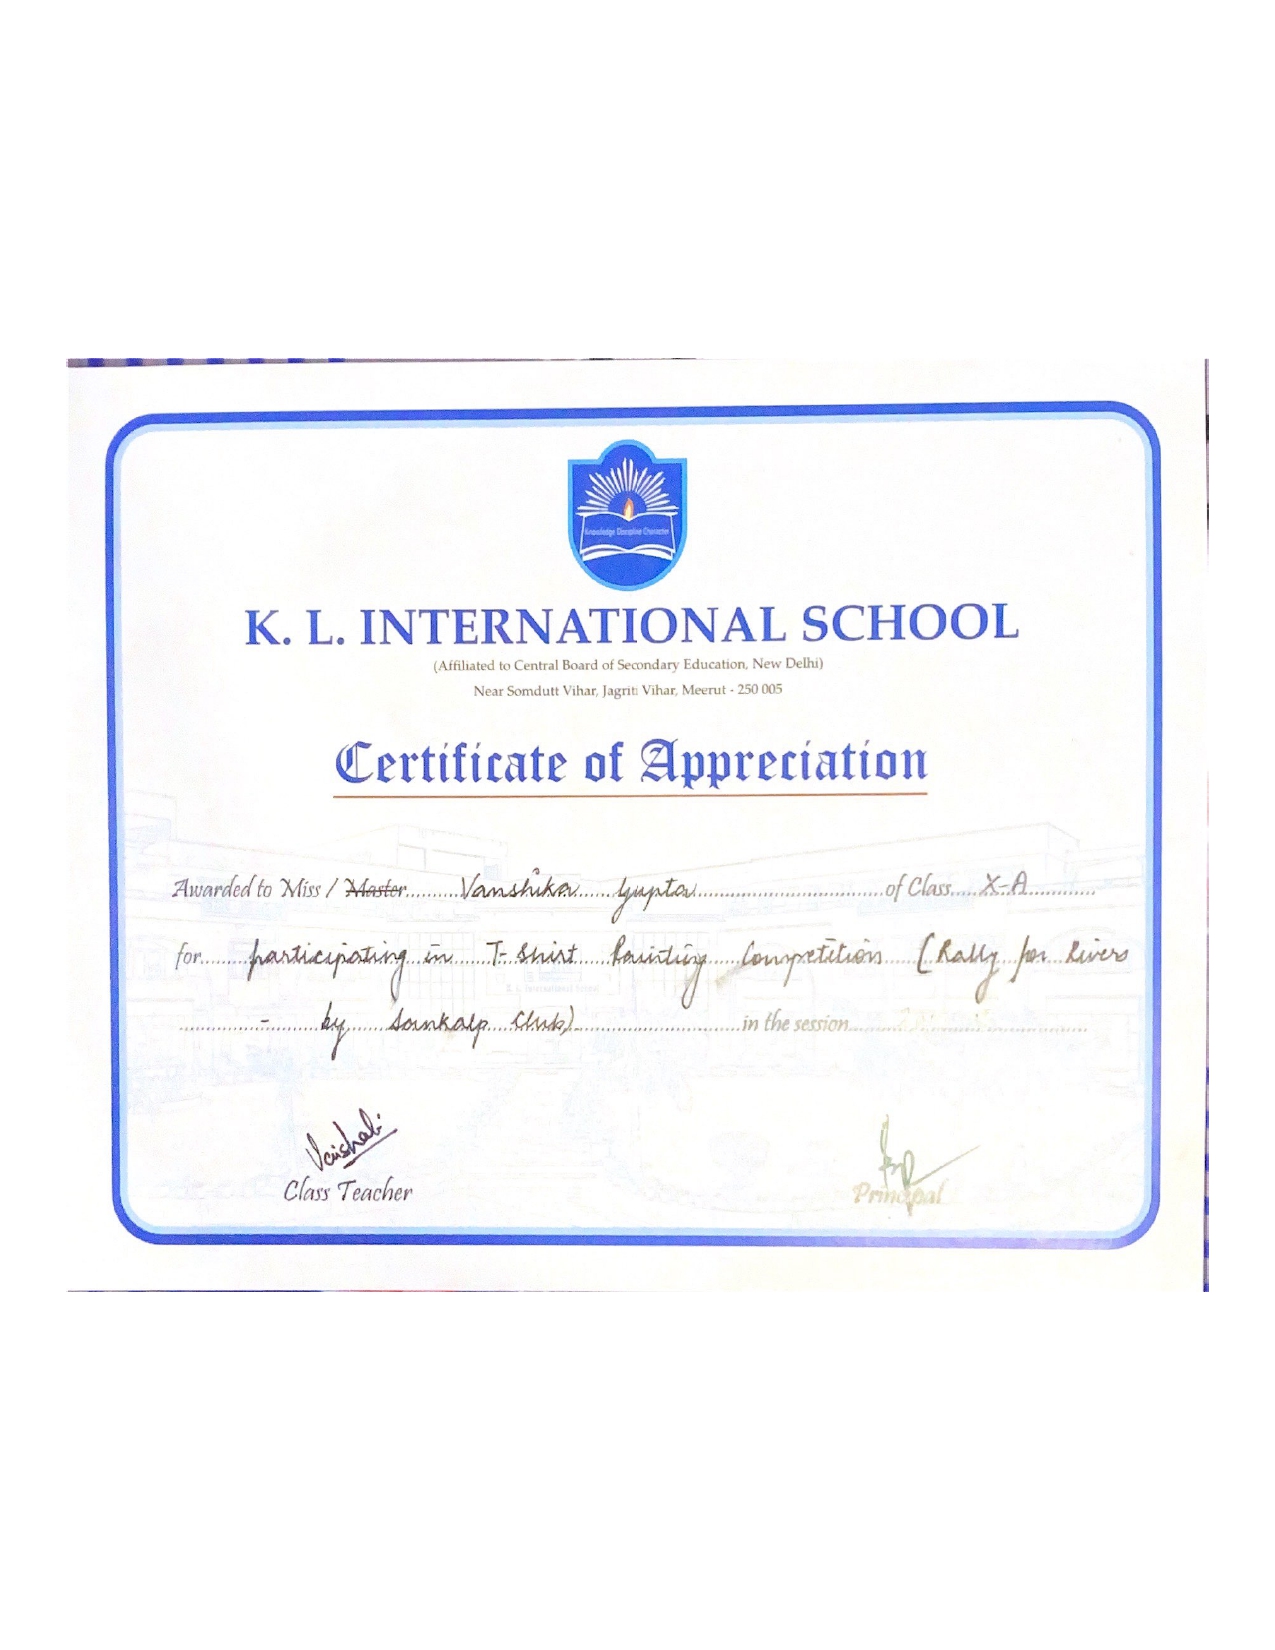 Knowledge Discipline Character
K. L. INTERNATIONAL SCHOOL
(Affiliated to Central Board of Secondary Education, New Delhi)
Near Somdutt Vihar, Jagriti Vihar, Meerut - 250 005
Certificate of Appreciation
Awarded to Miss / Master Vanshika Gupta of Class X-A
for participating in T-Shirt Painting Competition (Rally for Rivers
- by Sankalp Club) in the session
K. L. International School
Vaishali
Class Teacher
Principal